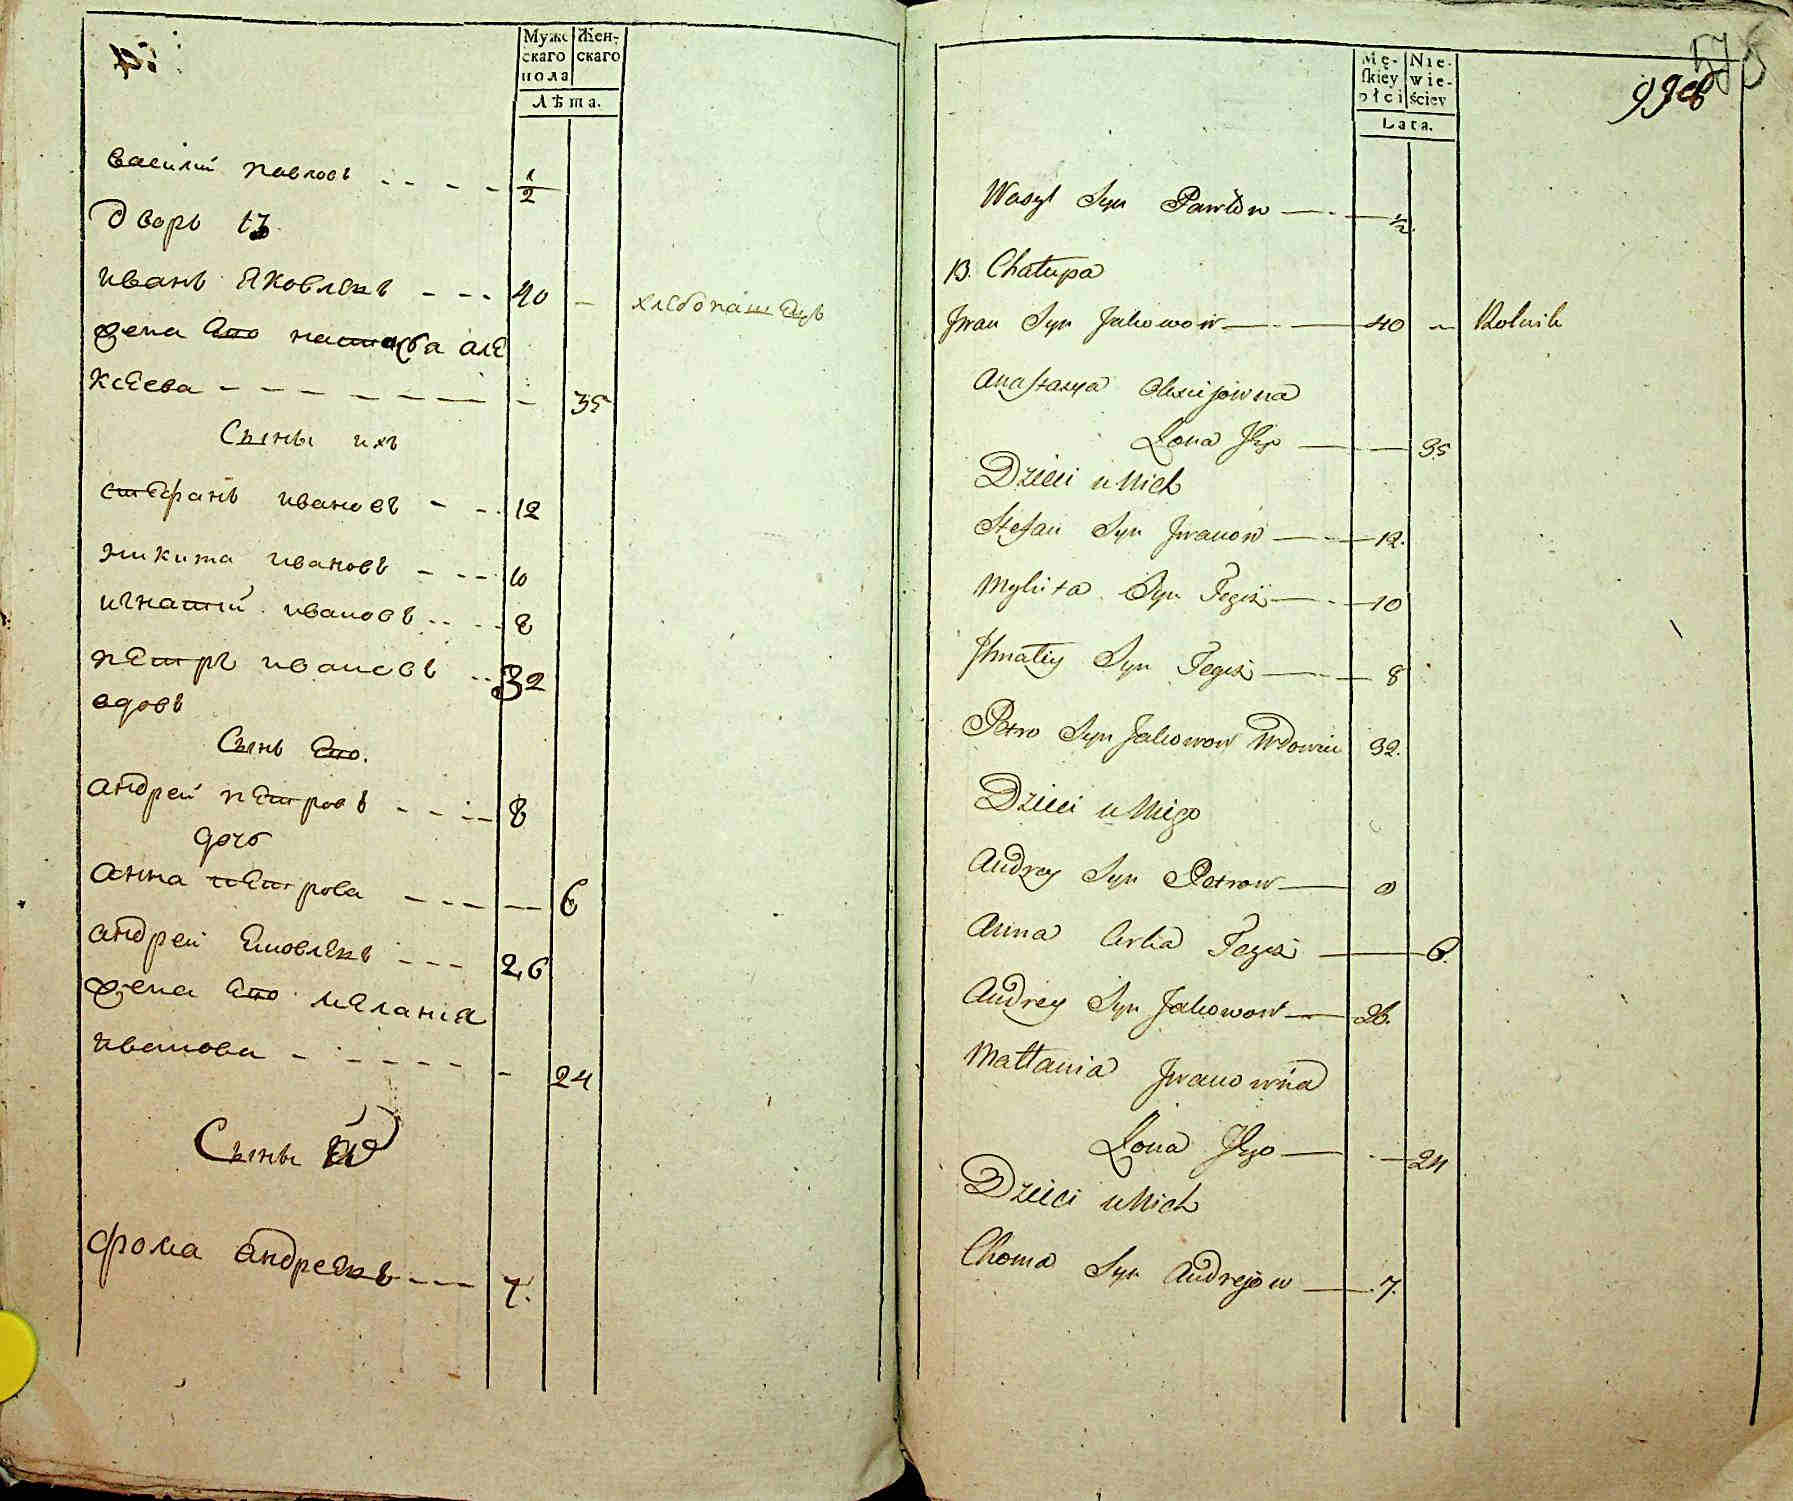 Мужс
скаго
пола
Жен-
скаго
Лѣта.
василий павловъ - - - - 1/2
дворъ 13
иванъ яковлевъ - - - 40 - хлебопашецъ
жена его настасья але
ксеева - - - - - - - 35
Сыны ихъ
стефанъ ивановъ - - - 12
никита ивановъ - - - 10
игнатий ивановъ - - - 8
петръ ивановъ - - 32
вдовъ
Сынъ его.
андрей петровъ - - - - 8
дочь
анна петрова - - - - - 6
андрей яковлевъ - - - 26
жена его мелания
иванова - - - - - - 24
Сыны
фома андреевъ - - - 7.
Mę-
skiey
płci
Nie-
wie-
ściey
Lata.
Wasyl Syn Pawłów — - — 1/2.
13. Chałupa
Jwan Syn Jakowow — - — 40 - Rolnik
Anastasya Olexijowna
Żona Jego — — 35
Dzieci u Nich
Stefan Syn Jwanow — - — 12.
Mykita Syn Tegoż — - — 10
Jhnatiy Syn Tegoż — - — 8
Petro Syn Jakowow Wdowiec 32.
Dzieci u Niego
Andrey Syn Petrow — 8
Anna Corka Tegoż — — 6.
Andrey Syn Jakowow — 26.
Małania Jwanowna
Żona Jego — - — 24
Dzieci u Nich
Choma Syn Andrejow — 7.